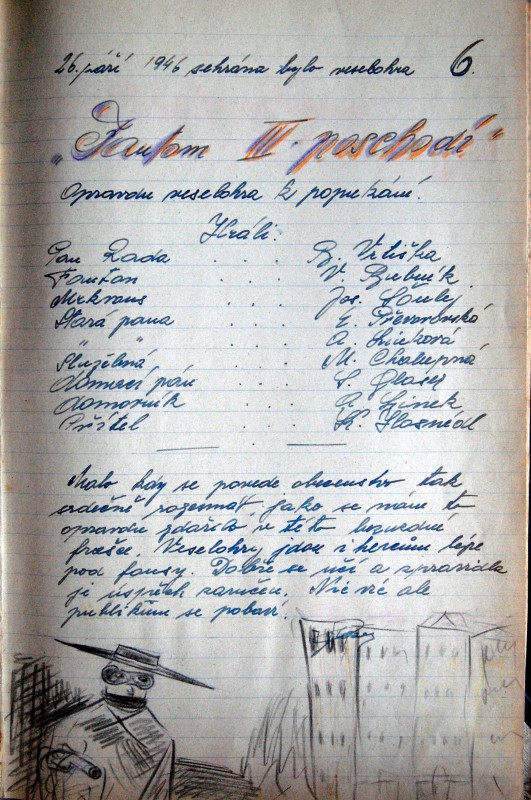 26. září 1946 sehrána byla veselohra 6.
"Fantom III. poschodí"
Opravdu veselohra k popukání.
Hráli:
Pan Rada . . . B. Vrtiška
Fantom . . . V.
Mrkvans . . . Jos.
Stará pana . . . E. Převorovská
" . . . A.
Služebná . . . M. Chalupná
Domácí pán . . . S. Glaser
Domovník . . . A. Linek
Přítel . . . K. Hosnédl
Málo kdy se povede obecenstvo tak
srdečně rozesmát, jako se nám to
opravdu zdařilo v této bezvadné
frašce. Veselohry jdou i hercům lépe
pod fousy. Dobře se učí a zpravidla
je úspěch zaručen. Nic víc ale
publikum se pobaví.